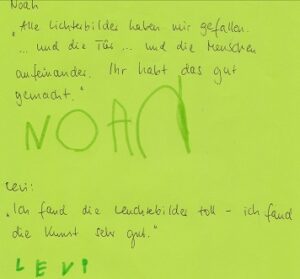 Noah
„Alle Lichterbilder haben mir gefallen.
... und die Tür ... und die Menschen
aufeinander. Ihr habt das gut
gemacht."
NOAH
Levi:
„Ich fand die Leuchtebilder toll – ich fand
die Kunst sehr gut."
LEVI